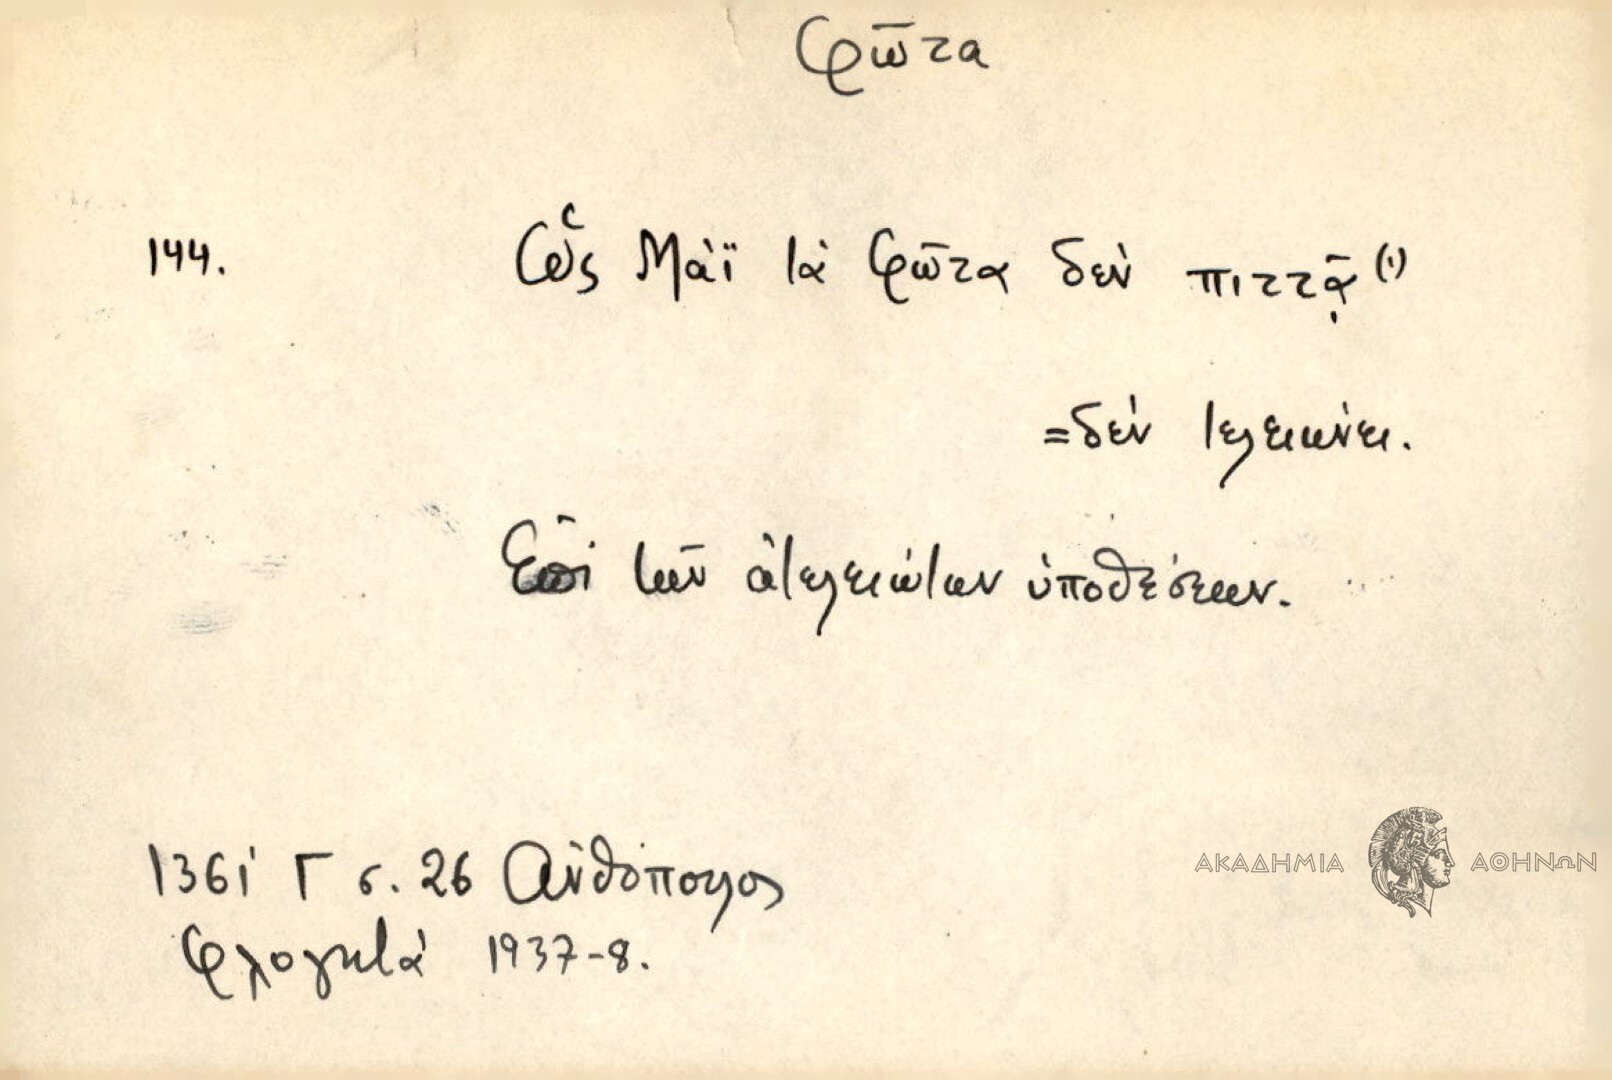 Φῶτα
144. Ὣς Μάϊ τὰ Φῶτα δὲν πιττᾷ (1)
=δὲν τελειώνει.
Ἐπὶ τῶν ἀτελειώτων ὑποθέσεων.
1361 Γ σ. 26 Ἀνθόπουλος
Φλογητά 1937-8.
ΑΚΑΔΗΜΙΑ ΑΘΗΝΩΝ